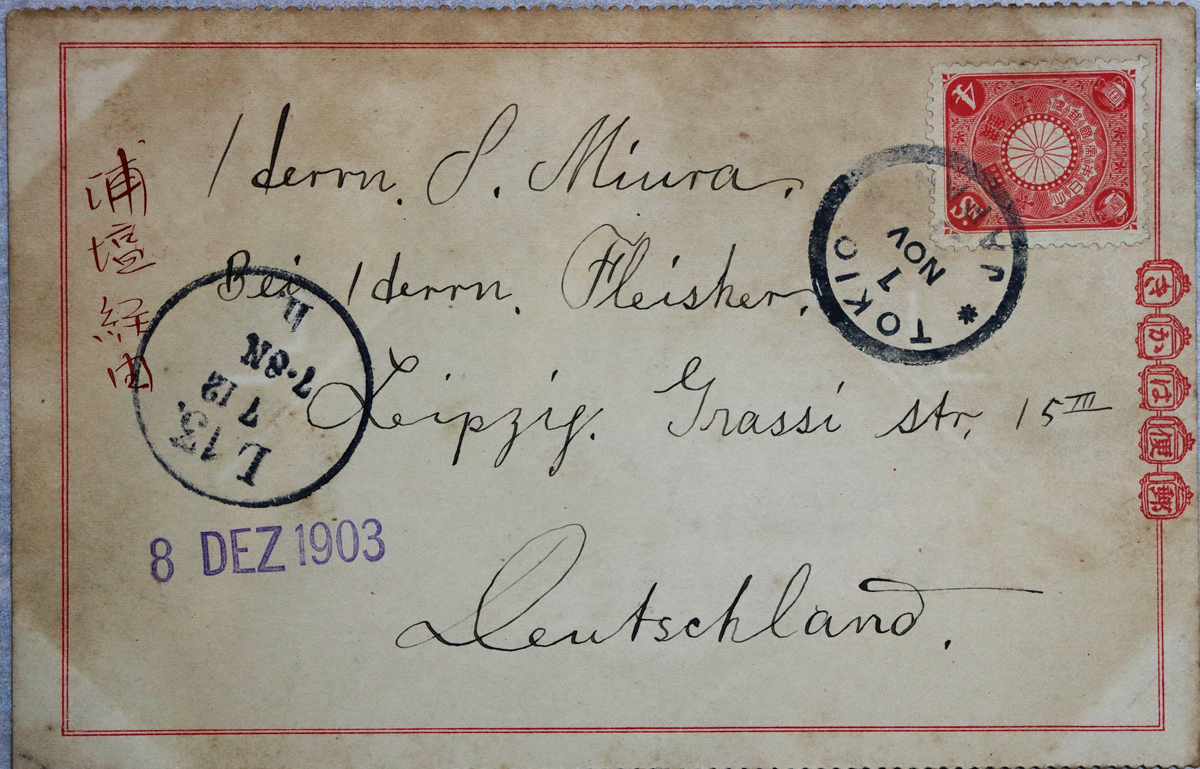 Herrn. S. Miura.
Bei Herrn. Fleisher.
Leipzig. Grassi str. 15 III
Deutschland.
浦塩経由
TOKIO JAPAN
1
NOV
4 Sn.
きかは便郵
L 13.
7 12
7-8N
8 DEZ 1903